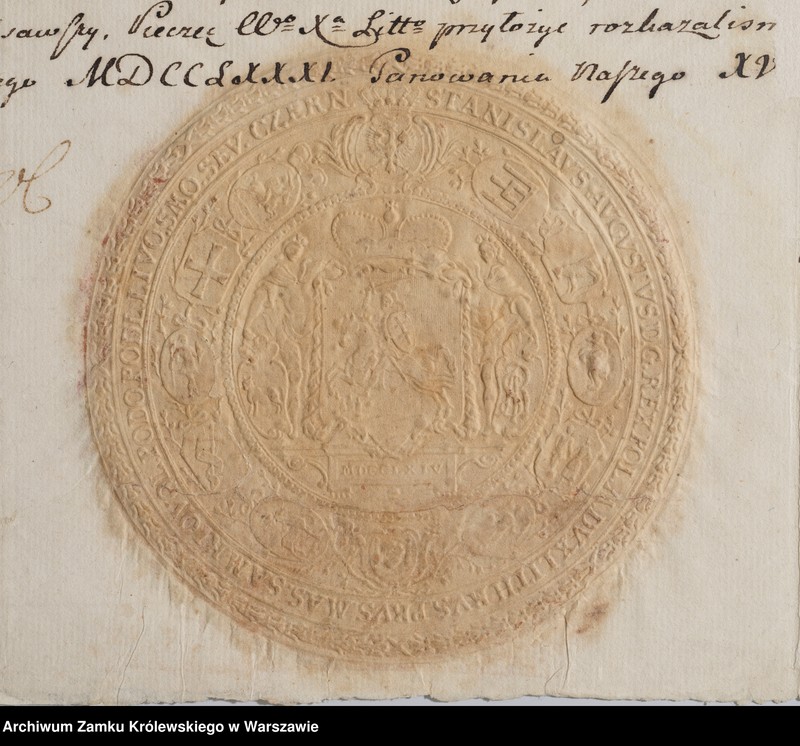 sawszy. Pieczęć Wo Xa Litto przyłożyć rozkazaliśm
ego MDCCLXXXI. Panowania Naszego XV
STANISLAVS AUGVSTVS D.G. REX POL. M. DVX LITH. RVS. PRVS. MAS. SAM. KIOV. PODO. PODL. LIVO. SMO. SEV. CZERN
MDCCLXIV
Archiwum Zamku Królewskiego w Warszawie